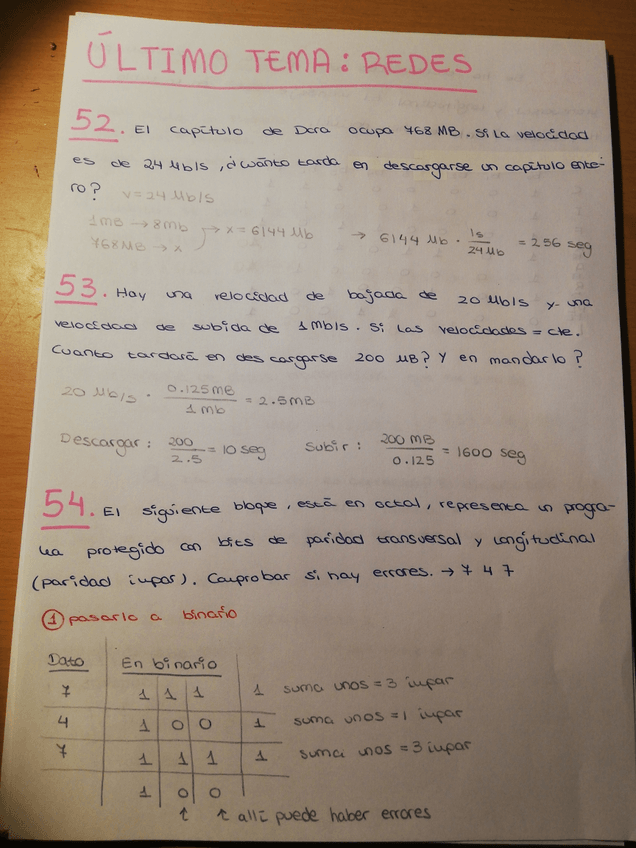 ÚLTIMO TEMA: REDES
52. El capítulo de Dora ocupa 768 MB. Si la velocidad
es de 24 Mb/s, ¿cuánto tarda en descargarse un capítulo ente-
ro? v=24 Mb/s
1MB → 8mb
768MB → x → x = 6144 Mb → 6144 Mb · 1s/24 Mb = 256 seg
53. Hay una velocidad de bajada de 20 Mb/s y una
velocidad de subida de 1Mb/s. Si las velocidades = cte.
Cuanto tardará en descargarse 200 MB? Y en mandarlo?
20 Mb/s · 0.125MB/1 mb = 2.5MB
Descargar: 200/2.5 = 10 seg Subir: 200 MB/0.125 = 1600 seg
54. El siguiente bloque, está en octal, representa un progra-
ma protegido con bits de paridad transversal y longitudinal
(paridad impar). Comprobar si hay errores. → 7 4 7
① pasarlo a binario
Dato En binario
7 1 1 1 1 suma unos = 3 impar
4 1 0 0 1 suma unos = 1 impar
7 1 1 1 1 suma unos = 3 impar
1 0 0
↑ ↑ allí puede haber errores